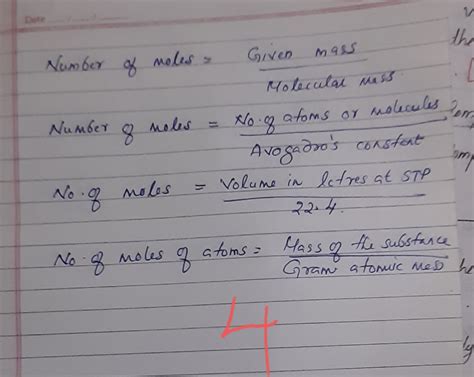 Date
Number of moles = Given mass
Molecular mass
Number of moles = No. of atoms or molecules
Avogadro's constant
No. of moles = Volume in letres at STP
22.4.
No. of moles of atoms = Mass of the substance
Gram atomic mass
4